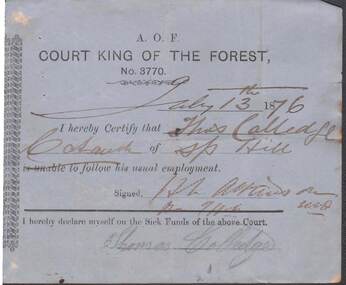 A. O. F.
COURT KING OF THE FOREST,
No. 3770.
July 13th 1876
I hereby Certify that Thos Colledge
of Hill
is unable to follow his usual employment.
Signed,
I hereby declare myself on the Sick Funds of the above Court.
Thomas Colledge